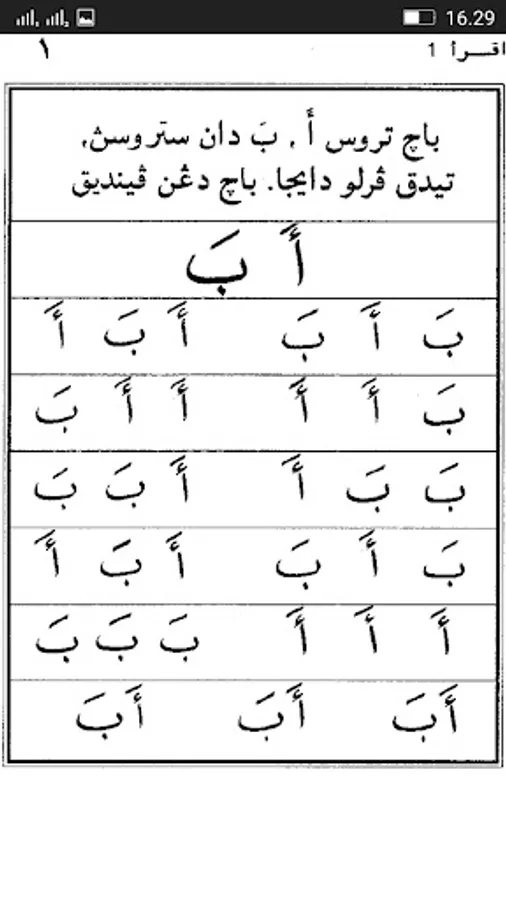 16.29
اقـــرأ 1 ١
باچ تروس أَ . بَ دان ستروسڽ،
تيدق ڤرلو دايجا. باچ دڠن ڤينديق
أَ بَ
بَ أَ بَ أَ بَ أَ
بَ أَ أَ أَ أَ بَ
بَ بَ أَ أَ بَ بَ
بَ أَ بَ أَ بَ أَ
أَ أَ أَ بَ بَ بَ
أَبَ أَبَ أَبَ